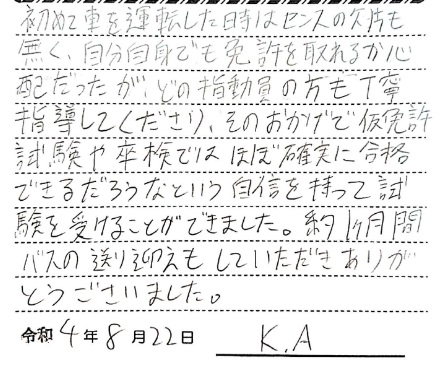 初めて車を運転した時はセンスの欠片も
無く、自分自身でも免許を取れるか心
配だったが、どの指動員の方も丁寧
指導してくださり、そのおかげで仮免許
試験や卒検ではほぼ確実に合格
できるだろうなという自信を持って試
験を受けることができました。約1ヶ月間
バスの送り迎えもしていただきありが
とうございました。
令和4年8月22日 K.A